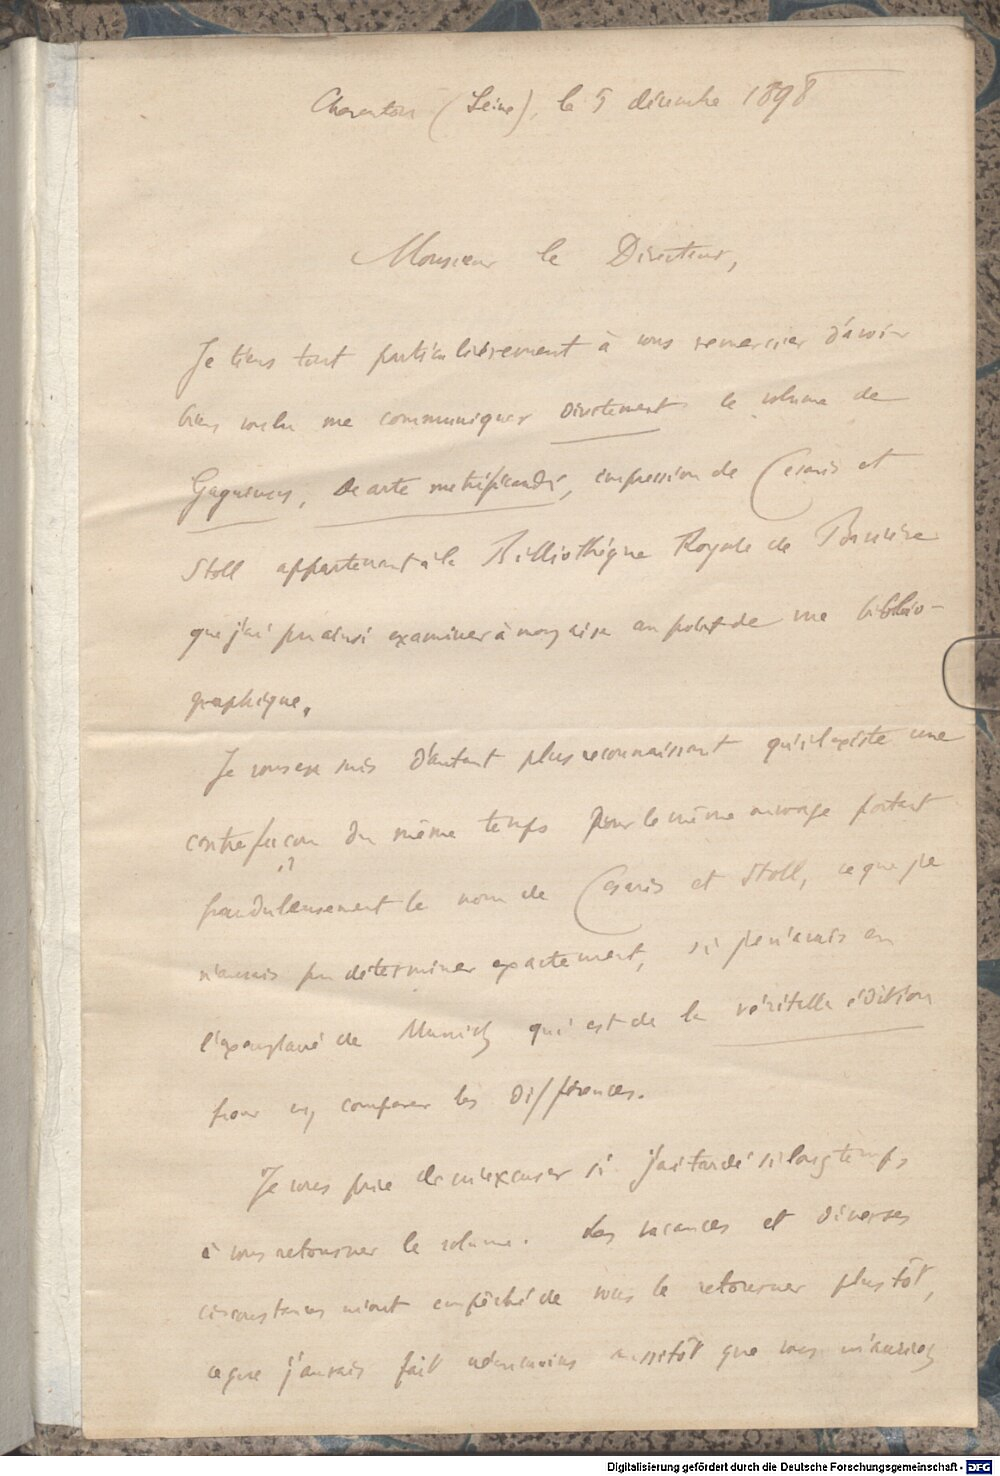 Charenton (Seine), le 5 décembre 1898
Monsieur le Directeur,
Je tiens tout particulièrement à vous remercier d'avoir
bien voulu me communiquer directement le volume de
Gaguinus, De arte metrificandi, impression de Cesaris et
Stoll appartenant à la Bibliothèque Royale de Bavière
que j'ai pu ainsi examiner à mon aise au point de vue biblio-
graphique.
Je vous en suis d'autant plus reconnaissant qu'il existe une
contrefaçon du même temps pour le même ouvrage portant
frauduleusement le nom de Cesaris et Stoll, ce que je
n'aurais pu déterminer exactement, si je n'avais eu
l'exemplaire de Munich qui est de la véritable édition
pour en comparer les différences.
Je vous prie de m'excuser si j'ai tardé si longtemps
à vous retourner le volume. Les vacances et diverses
circonstances m'ont empêché de vous le retourner plus tôt,
ce que j'aurais fait néanmoins aussitôt que vous m'auriez
Digitalisierung gefördert durch die Deutsche Forschungsgemeinschaft - DFG